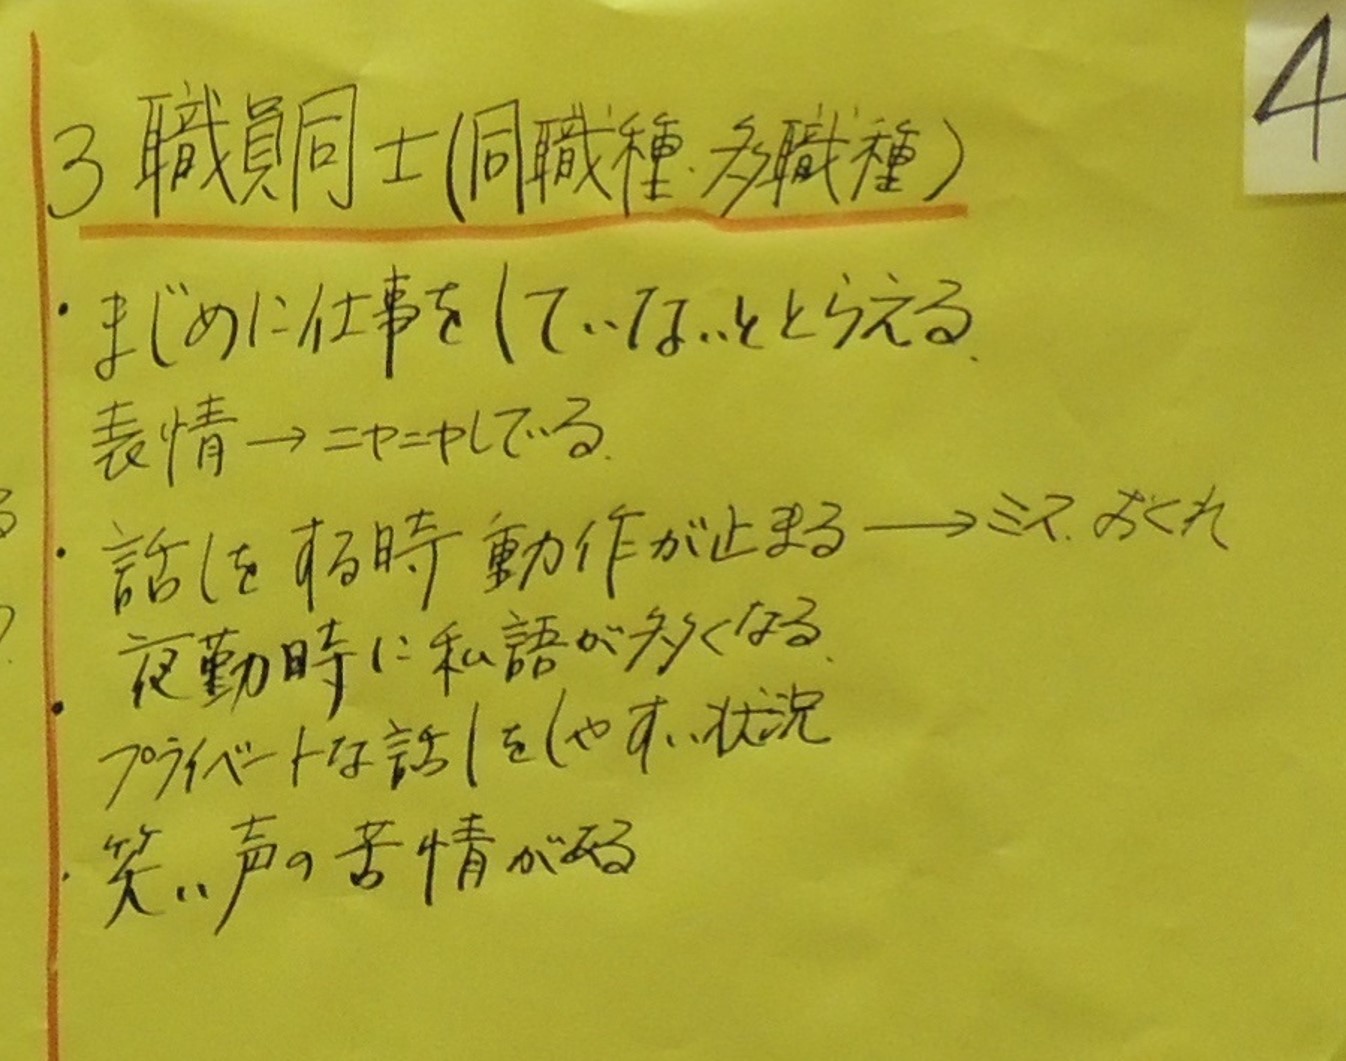 4
3 職員同士(同職種・多職種)
・まじめに仕事をしていないととらえる.
表情→ニヤニヤしている.
・話しをする時動作が止まる→ミス.おくれ
夜勤時に私語が多くなる.
・プライベートな話しをしやすい状況
・笑い声の苦情がある